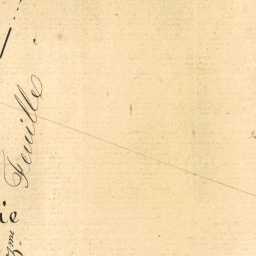 Feuille
ie